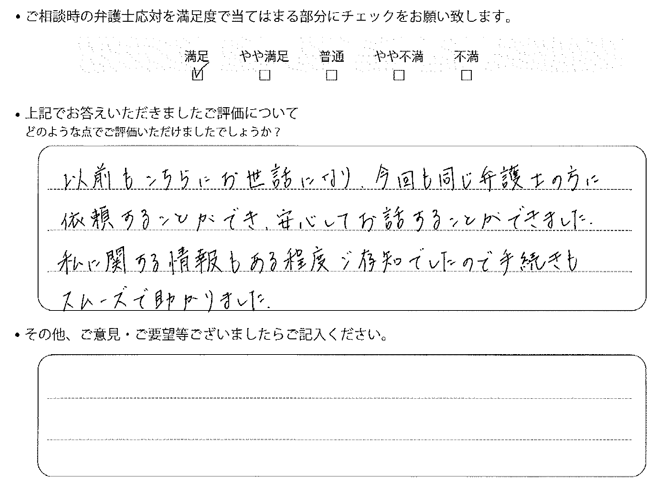 • ご相談時の弁護士応対を満足度で当てはまる部分にチェックをお願い致します。
満足 やや満足 普通 やや不満 不満
☑ ☐ ☐ ☐ ☐
• 上記でお答えいただきましたご評価について
どのような点でご評価いただけましたでしょうか?
以前もこちらにお世話になり、今回も同じ弁護士の方に
依頼することができ、安心してお話することができました.
私に関する情報もある程度ご存知でしたので手続きも
スムーズで助かりました.
• その他、ご意見・ご要望等ございましたらご記入ください。